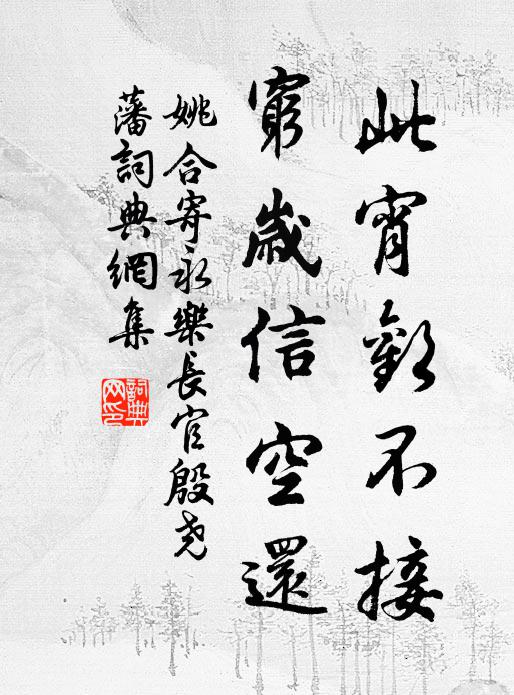 此宵歡不接
窮歲信空還
姚合寄永樂長官殷尧
藩詞典網集
詞典
网印